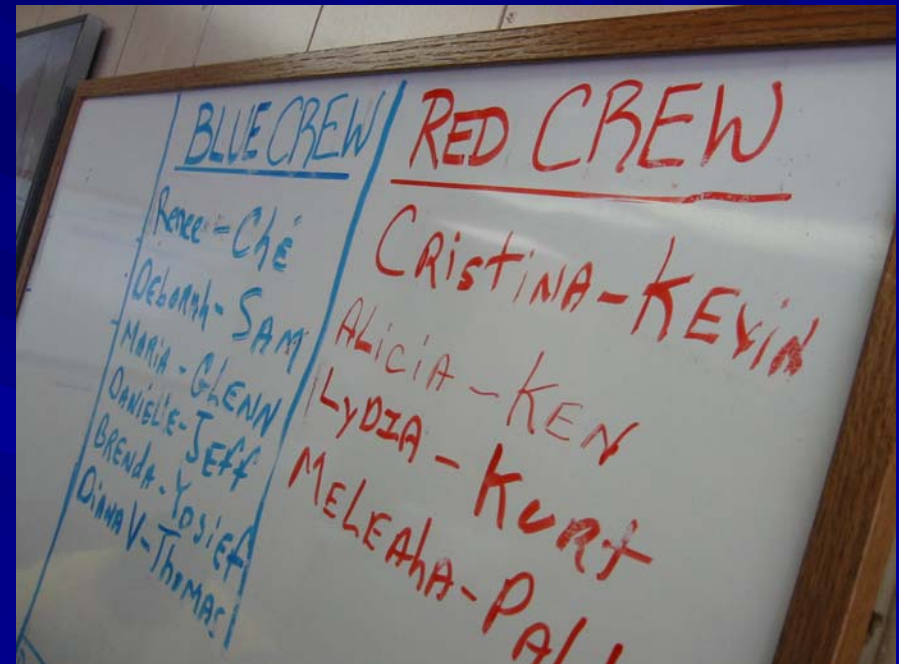 BLUE CREW
Renee - Ché
DEBORAH - SAM
MARIA - GLENN
DANIELLE - JEFF
BRENDA - YOSIEF
DIANA V - THOMAS
RED CREW
CRISTINA - KEVIN
ALiCiA - KEN
LyDIA - KURT
MELEAhA -